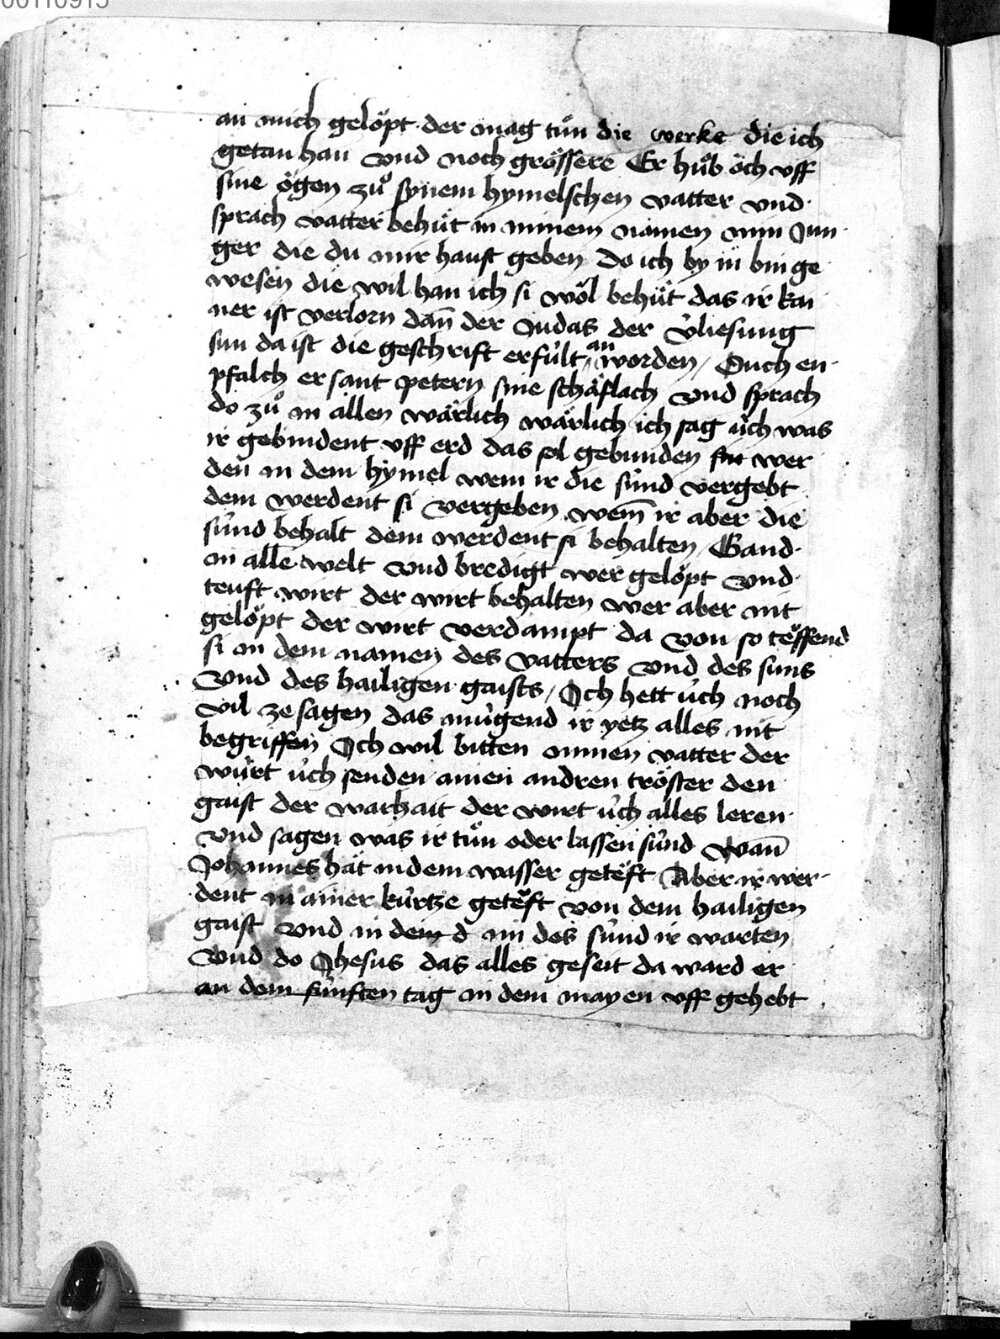 00110915
an mich gelöpt der mag tuͦn die werke die ich
getan han vnd noch grössere Er huͦb öch vff
sine ögen zuͦ synem hymelschen vatter vnd
sprach vatter behuͤt in minem namen min Jun
ger die du mir haust geben Do ich by in bin ge
wesen die wil han ich si wöl behuͤt das ir kai
ner ist verlorn dan̄ der Judas der v̓liesung
sun da ist die geschrift erfült an worden / Ouch en
pfalch er sant petern sine schäflach vnd sprach
do zuͦ in allen wärlich wärlich ich sag üch was
ir gebindent vff erd das sol gebunden sin wer
den in dem hymel wem ir die sünd vergebt
dem werdent si vergeben wem̄ ir aber die
sünd behalt dem werdent si behalten / Gand
in alle welt vnd bredigt wer gelöpt vnd
teuft wirt der wirt behalten wer aber nit
gelöpt der wirt verdampt da von so töffend
si in dem namen des vatters vnd des suns
Vnd des hailigen gaists / Ich hett üch noch
vil ze sagen das mügend ir yetz alles nit
begriffen Ich wil bitten minen vatter der
würt üch senden ainen andren tröster den
gaist der warhait der wirt üch alles leren
vnd sagen was ir tuͦn oder lassen sünd Wan̄
Johannes hät in dem wasser getöft Aber ir wer
dent in ainer kürtze getöft von dem hailigen
gaist vnd in dem d im des sünd ir warten
Vnd do Jhesus das alles geseit da ward er
an dem fünften tag in dem mayen vff gehebt